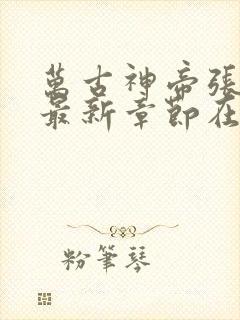 萬古神帝張
最新章節在
粉筆琴